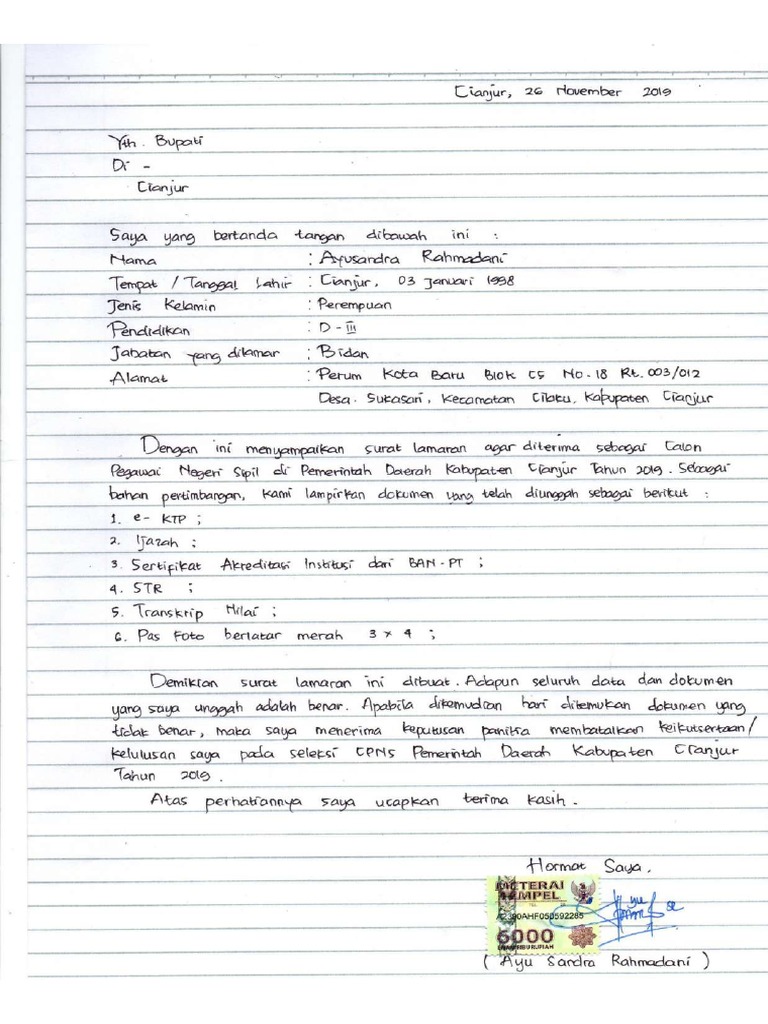 Cianjur, 26 November 2019
Yth. Bupati
Di -
Cianjur
Saya yang bertanda tangan dibawah ini :
Nama : Ayusandra Rahmadani
Tempat / Tanggal Lahir : Cianjur, 03 Januari 1998
Jenis Kelamin : Perempuan
Pendidikan : D - III
Jabatan yang dilamar : Bidan
Alamat : Perum Kota Baru Blok C5 No. 18 Rt. 003/012
Desa. Sukasari, Kecamatan Cilaku, Kabupaten Cianjur
Dengan ini menyampaikan surat lamaran agar diterima sebagai Calon
Pegawai Negeri Sipil di Pemerintah Daerah Kabupaten Cianjur Tahun 2019. Sebagai
bahan pertimbangan, kami lampirkan dokumen yang telah diunggah sebagai berikut :
1. e- KTP ;
2. Ijazah ;
3. Sertifikat Akreditasi Institusi dari BAN-PT ;
4. STR ;
5. Transkrip Nilai ;
6. Pas Foto berlatar merah 3 x 4 ;
Demikian surat lamaran ini dibuat. Adapun seluruh data dan dokumen
yang saya unggah adalah benar. Apabila dikemudian hari ditemukan dokumen yang
tidak benar, maka saya menerima keputusan panitia membatalkan keikutsertaan/
kelulusan saya pada seleksi CPNS Pemerintah Daerah Kabupaten Cianjur
Tahun 2019.
Atas perhatiannya saya ucapkan terima kasih.
Hormat Saya,
METERAI
TEMPEL
6000
( Ayu Sandra Rahmadani )